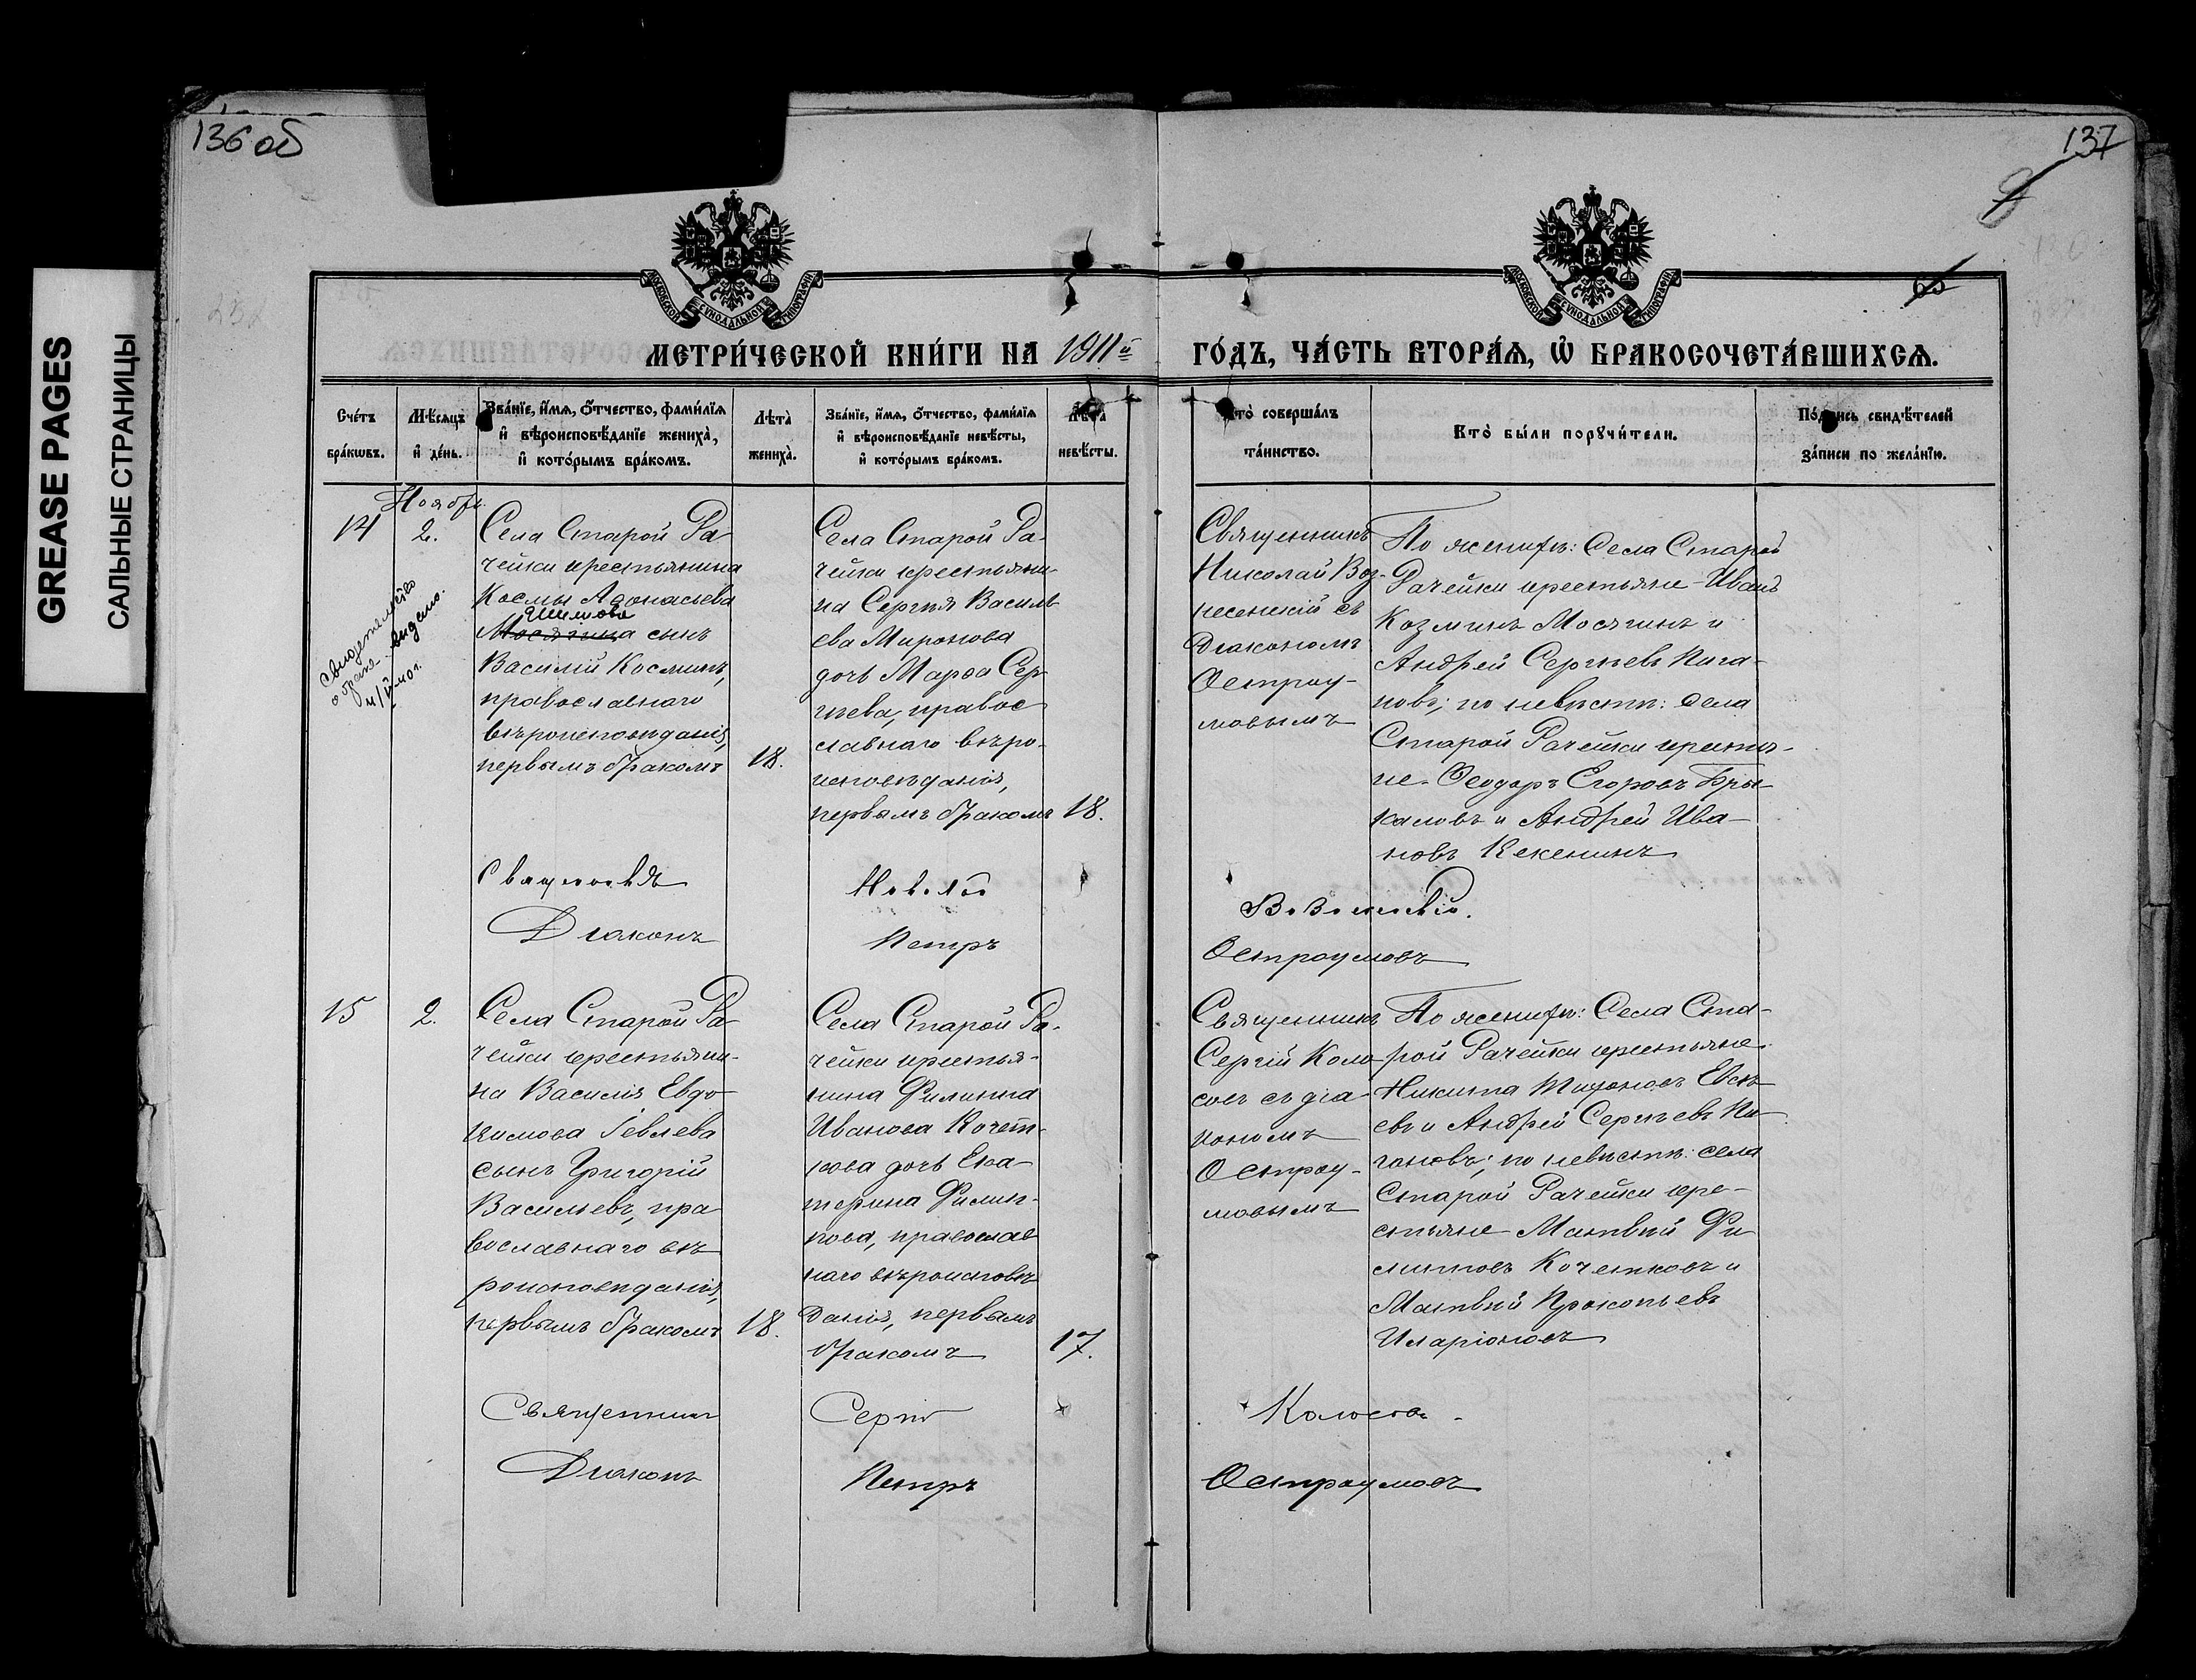 136 об
137
GREASE PAGES
САЛЬНЫЕ СТРАНИЦЫ
МОСКОВСКОЙ СѴНОДАЛЬНОЙ ТИПОГРАФІИ
МОСКОВСКОЙ СѴНОДАЛЬНОЙ ТИПОГРАФІИ
МЕТРИ́ЧЕСКОЙ КНИ́ГИ НА 1911й ГО́ДЪ, ЧА́СТЬ ВТОРА́Я, Ѡ҆ БРАКОСОЧЕТА́ВШИХСѦ.
Сче́тъ
бра́кѡвъ.
Мѣ́сяцъ
и҆ де́нь.
Зва́нїе, и҆́мѧ, ѻ҆́тчество, фами́лїѧ
и҆ вѣроисповѣ́данїе жениха̀,
и҆ кото́рымъ бра́комъ.
Лѣ́та
жениха̀.
Зва́нїе, и҆́мѧ, ѻ҆́тчество, фами́лїѧ
и҆ вѣроисповѣ́данїе невѣ́сты,
и҆ кото́рымъ бра́комъ.
Лѣ́та
невѣ́сты.
Кто̀ соверша́лъ
та́инство.
Кто̀ бы́ли порꙋчи́тели.
По́дпись свидѣ́телей
за́писи по жела́нїю.
Ноября
14
2.
Села Старой Ра-
чейки крестьянина
Космы Афонасьева
Мосягина сынъ
Василій Косминъ,
православнаго
вѣроисповѣданія,
первымъ бракомъ
18.
Села Старой Ра-
чейки крестьяни-
на Сергѣя Василь
ева Миронова
дочь Марѳа Сер-
гѣева, правос
славнаго вѣро-
исповѣданія,
первымъ бракомъ
18.
Священникъ
Николай Воз-
несенскій съ
діакономъ
Остроу-
мовымъ
По женихѣ: Села Старой
Рачейки крестьяне Иванъ
Козминъ Мосягинъ и
Андрей Сергѣевъ Пига-
новъ; по невѣстѣ: Села
Старой Рачейки крестья-
не Ѳеодоръ Егоровъ Бры-
каловъ и Андрей Ива-
новъ Кекенинъ
свидетельство
о браке выдано.
Священникъ
Николай
Вознесенскій.
Діаконъ
Петръ
Остроумовъ
15
2.
Села Старой Ра-
чейки крестьяни-
на Василія Евдо-
кимова Іевлева
сынъ Григорій
Васильевъ, пра
вославнаго вѣ-
роисповѣданія,
первымъ бракомъ
18.
Села Старой Ра-
чейки крестья-
нина Филиппа
Иванова Кочет-
кова дочь Ека-
терина Филип-
пова, православ
наго вѣроисповѣ
данія, первымъ
бракомъ
17.
Священникъ
Сергій Коло-
совъ съ діа-
кономъ
Остроу-
мовымъ
По женихѣ: Села Ста-
рой Рачейки крестьяне
Никита Тихоновъ Евсѣ-
евъ и Андрей Сергѣевъ Пи-
гановъ; по невѣстѣ: села
Старой Рачейки кре-
стьяне Матвѣй Фи
липповъ Кочетковъ и
Матвѣй Прокопьевъ
Иларіоновъ
Священникъ
Сергій
Колосовъ.
Діаконъ
Петръ
Остроумовъ